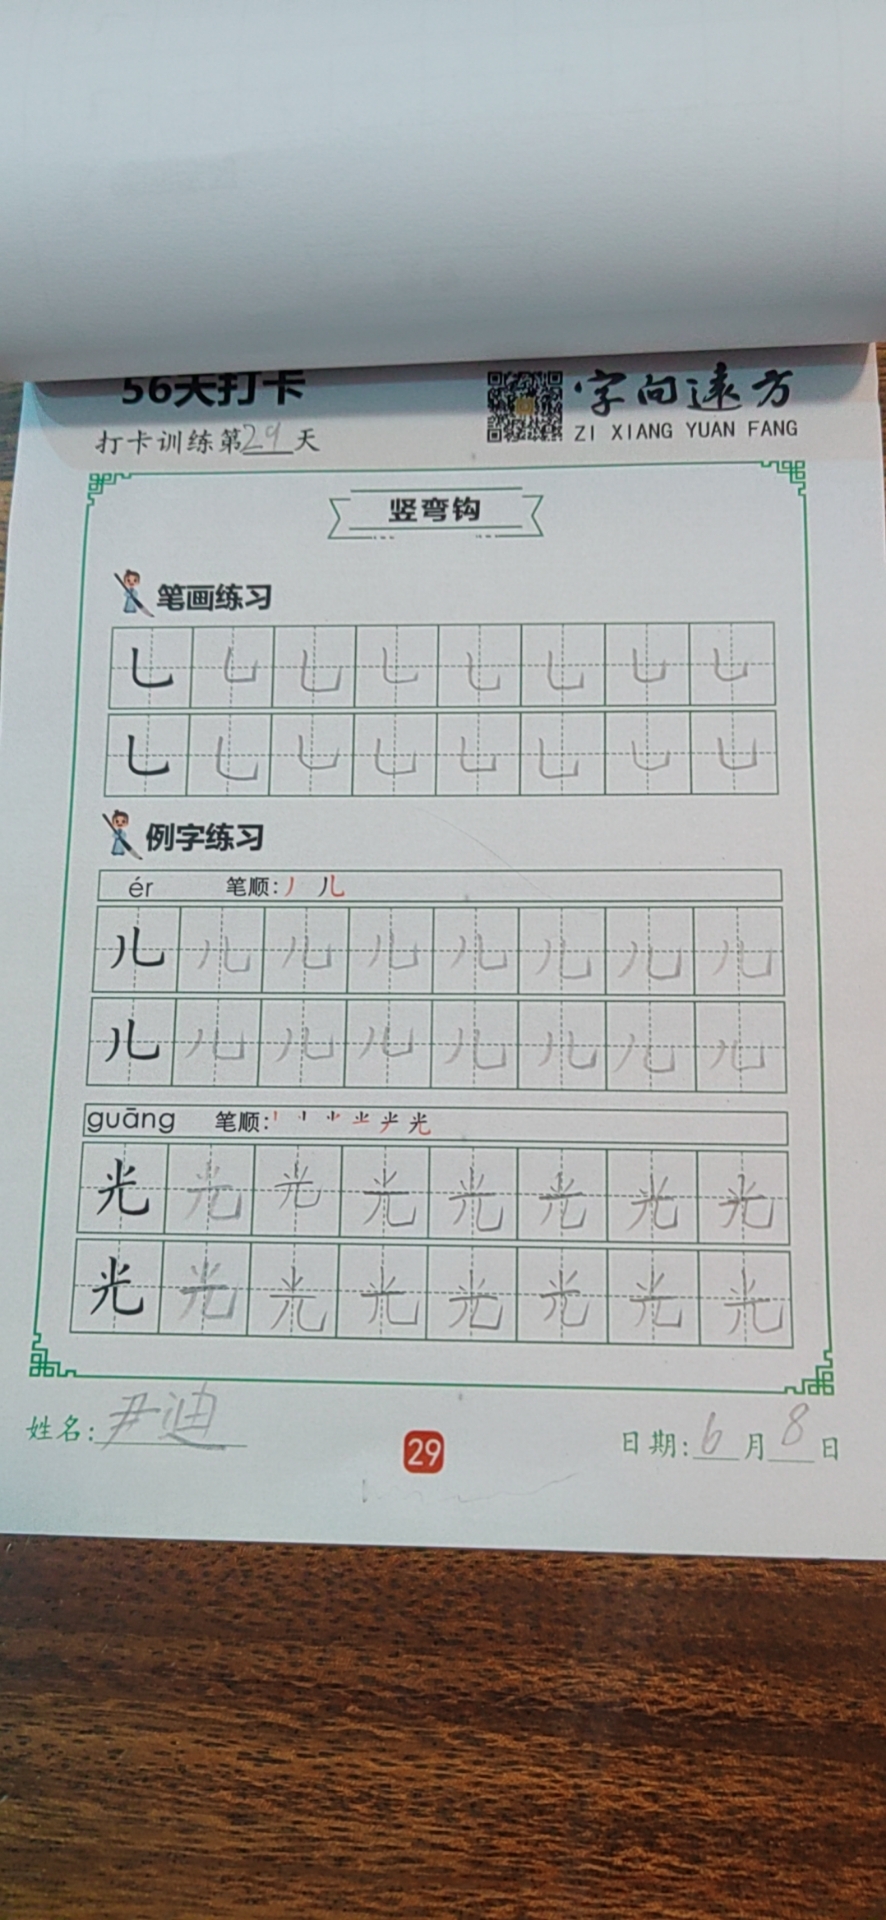 56天打卡
字向远方
ZI XIANG YUAN FANG
打卡训练第29天
竖弯钩
笔画练习
乚 乚 乚 乚 乚 乚 乚 乚
乚 乚 乚 乚 乚 乚 乚 乚
例字练习
ér 笔顺:丿 儿
儿 儿 儿 儿 儿 儿 儿 儿
儿 儿 儿 儿 儿 儿 儿 儿
guāng 笔顺:
光 光 光 光 光 光 光 光
光 光 光 光 光 光 光 光
姓名:尹迪
29
日期:6月8日